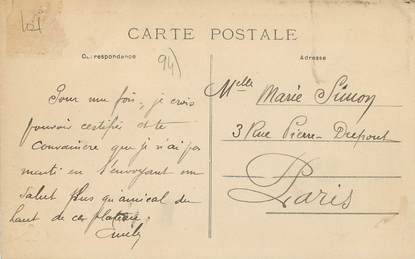 101
CARTE POSTALE
Correspondance
Adresse
94)
Pour une fois, je crois
pouvoir certifier et te
convaincre que je n'ai pas
menti en t'envoyant un
salut plus qu'amical du
haut de ces
Melle Marie Simon
3 Rue Pierre-Dupont
Paris